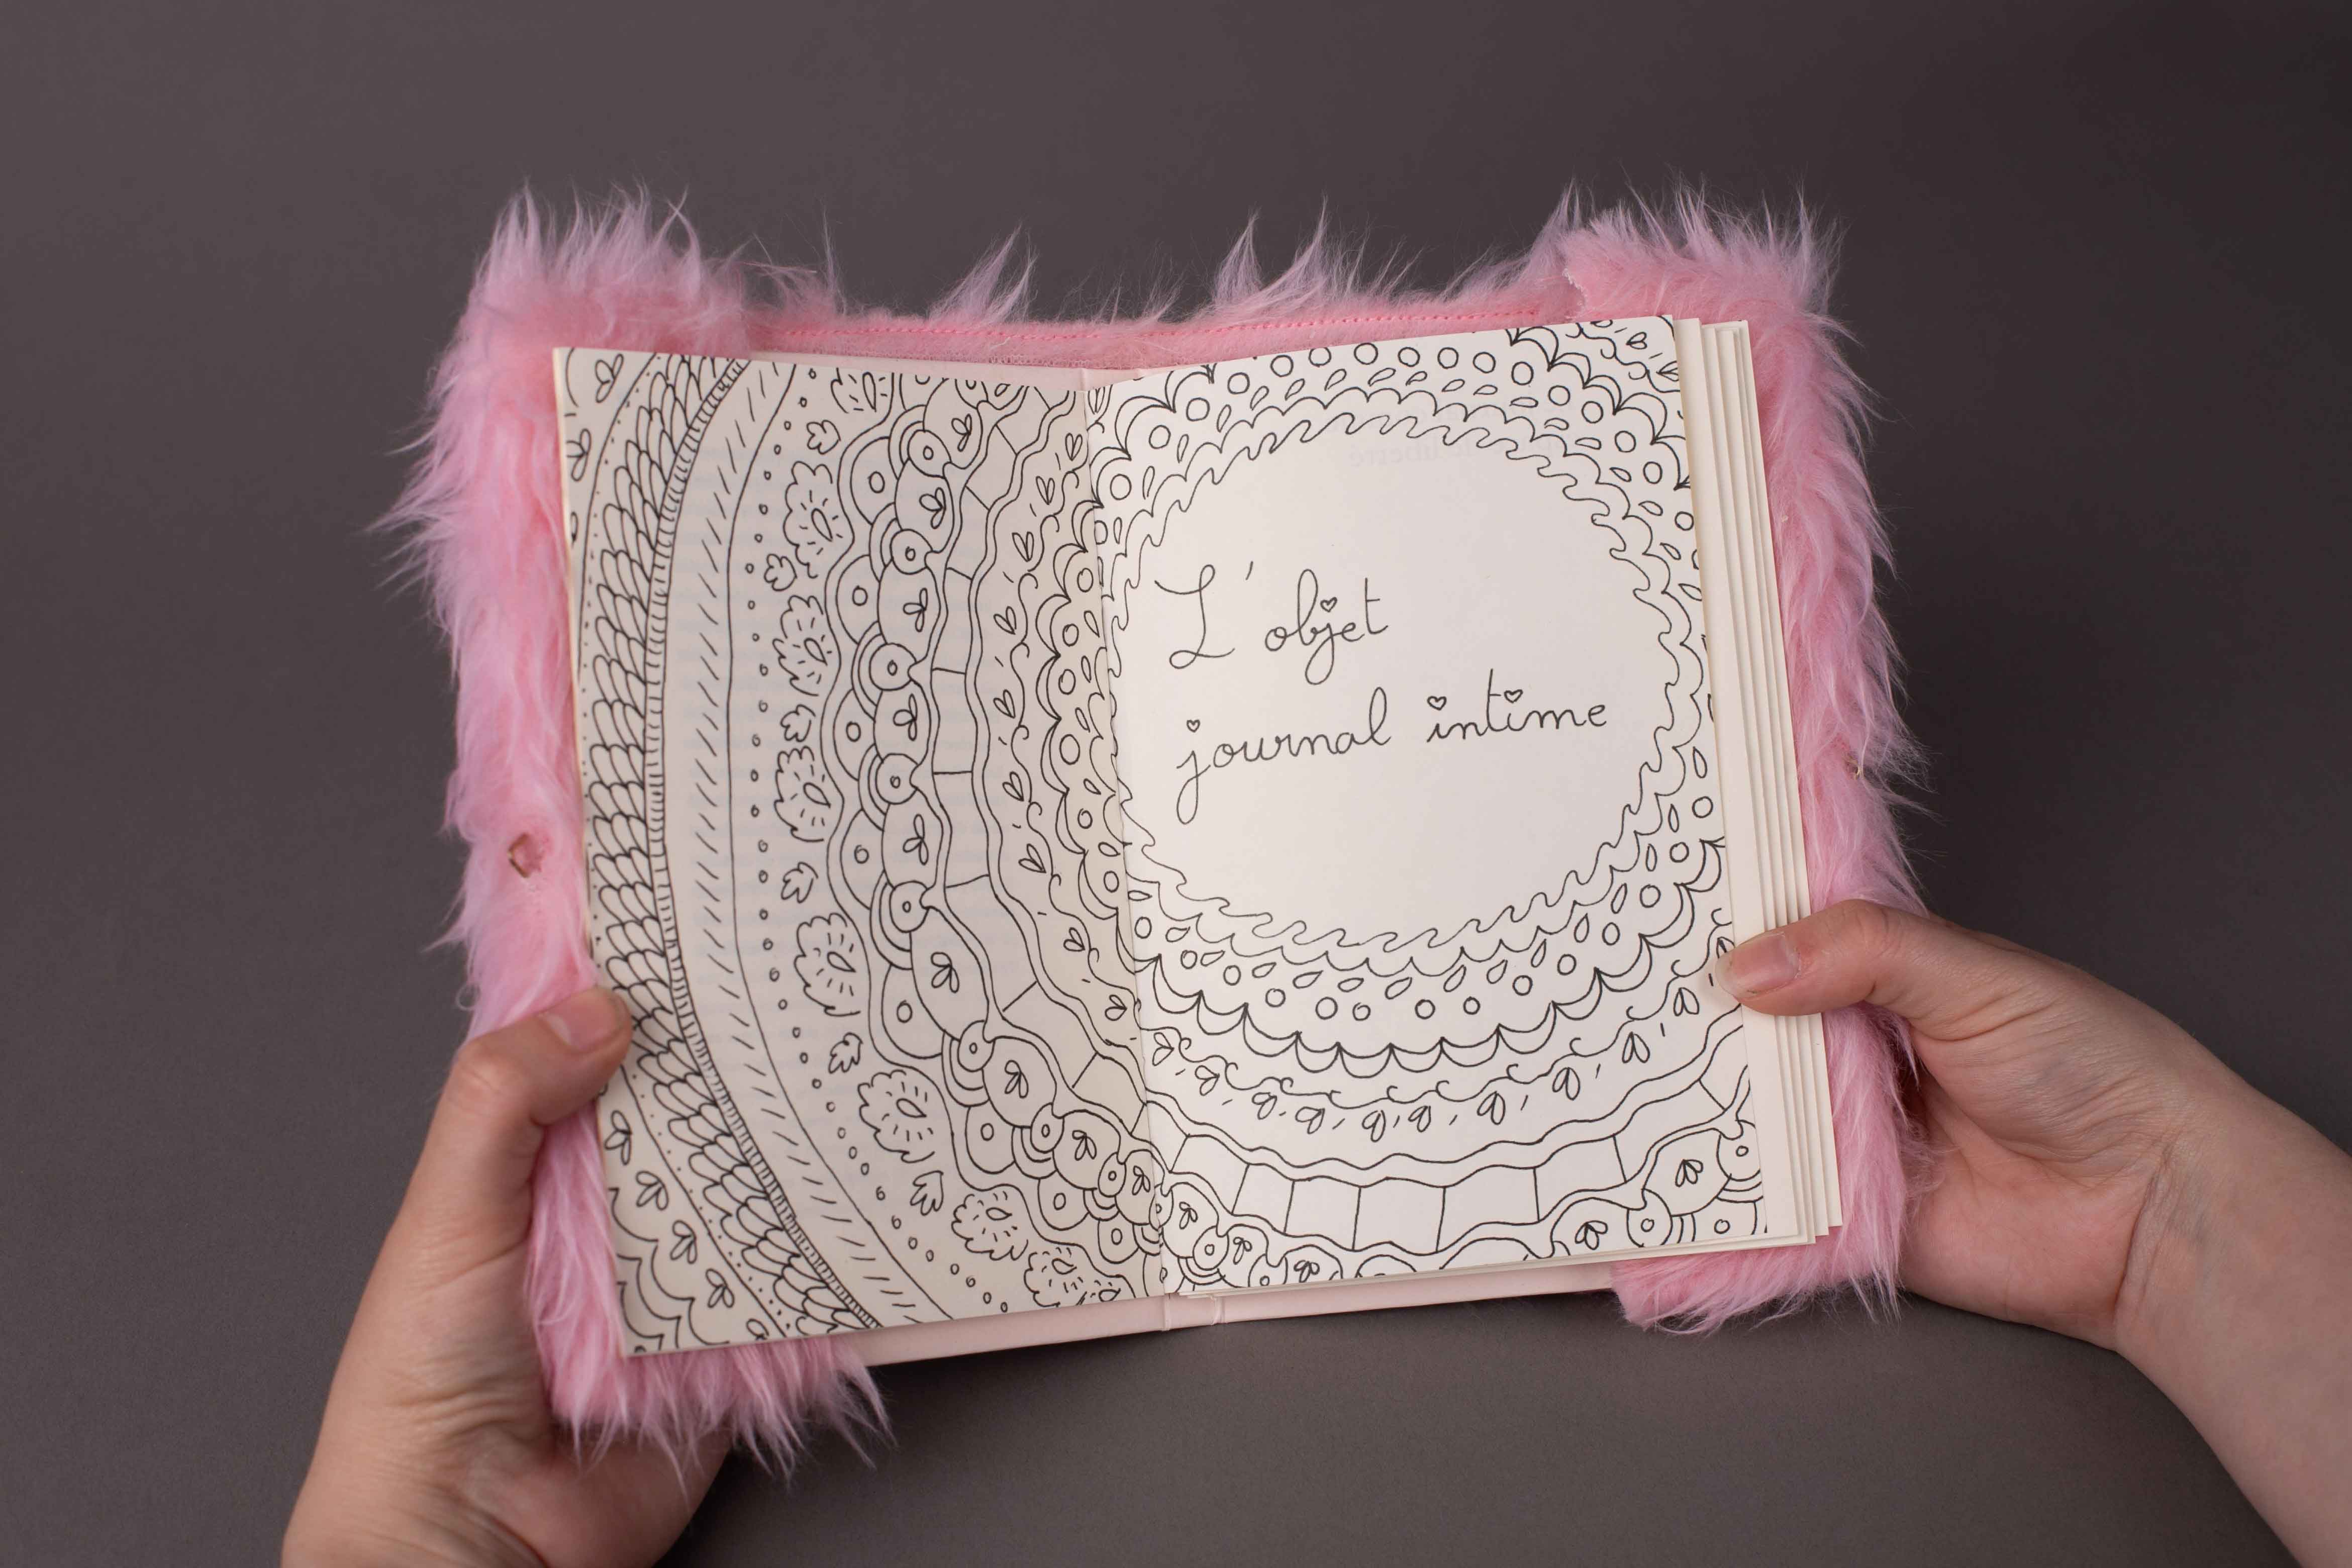 L'objet
journal intime